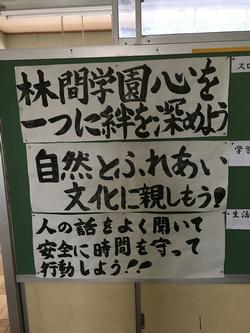 林間学園心を
一つに絆を深めよう
自然とふれあい
文化に親しもう!
人の話をよく聞いて
安全に時間を守って
行動しよう!!
スロ
学習
生活